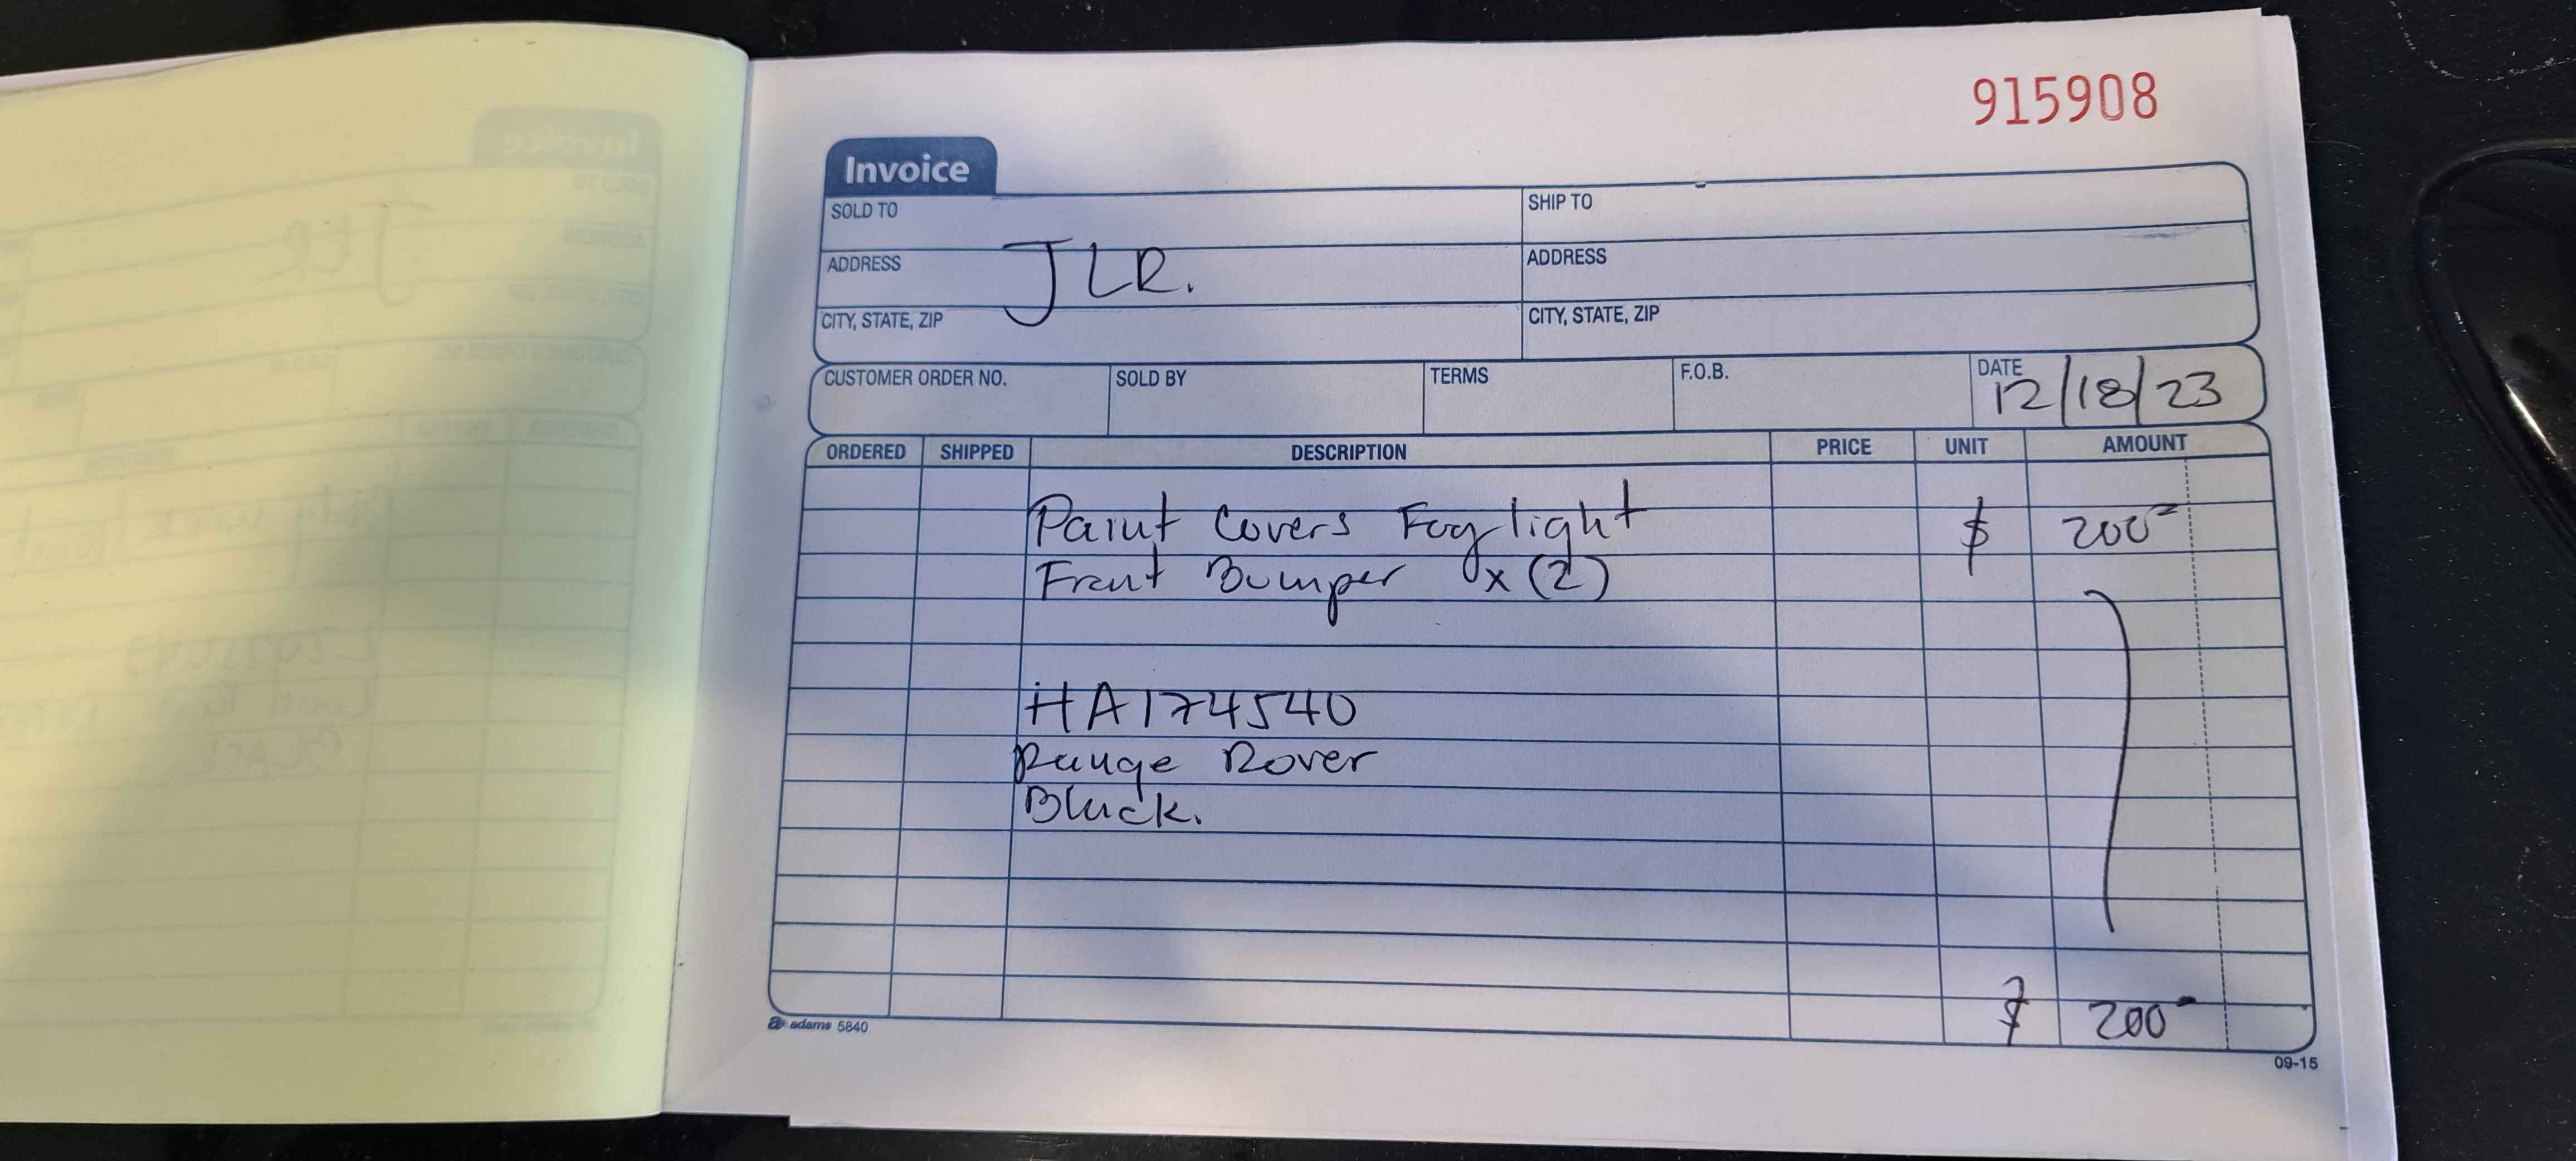 915908
Invoice
SOLD TO
SHIP TO
ADDRESS
ADDRESS
JLR.
CITY, STATE, ZIP
CITY, STATE, ZIP
CUSTOMER ORDER NO. SOLD BY TERMS F.O.B. DATE
12/18/23
ORDERED SHIPPED DESCRIPTION PRICE UNIT AMOUNT
Paint Covers Fog light $ 200
Front Bumper x (2)
HA174540
Range Rover
Black.
$ 200
adams 5840
09-15